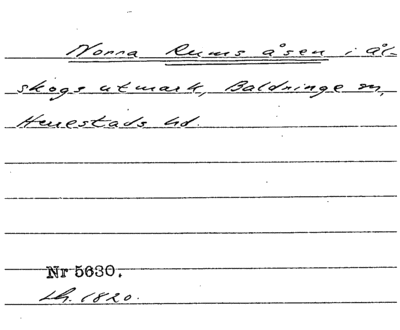 Norra Rums åsen i ål-
skogs utmark, Baldringe sn,
Herrestads hd.
Nr 5630.
Lh. 1820.